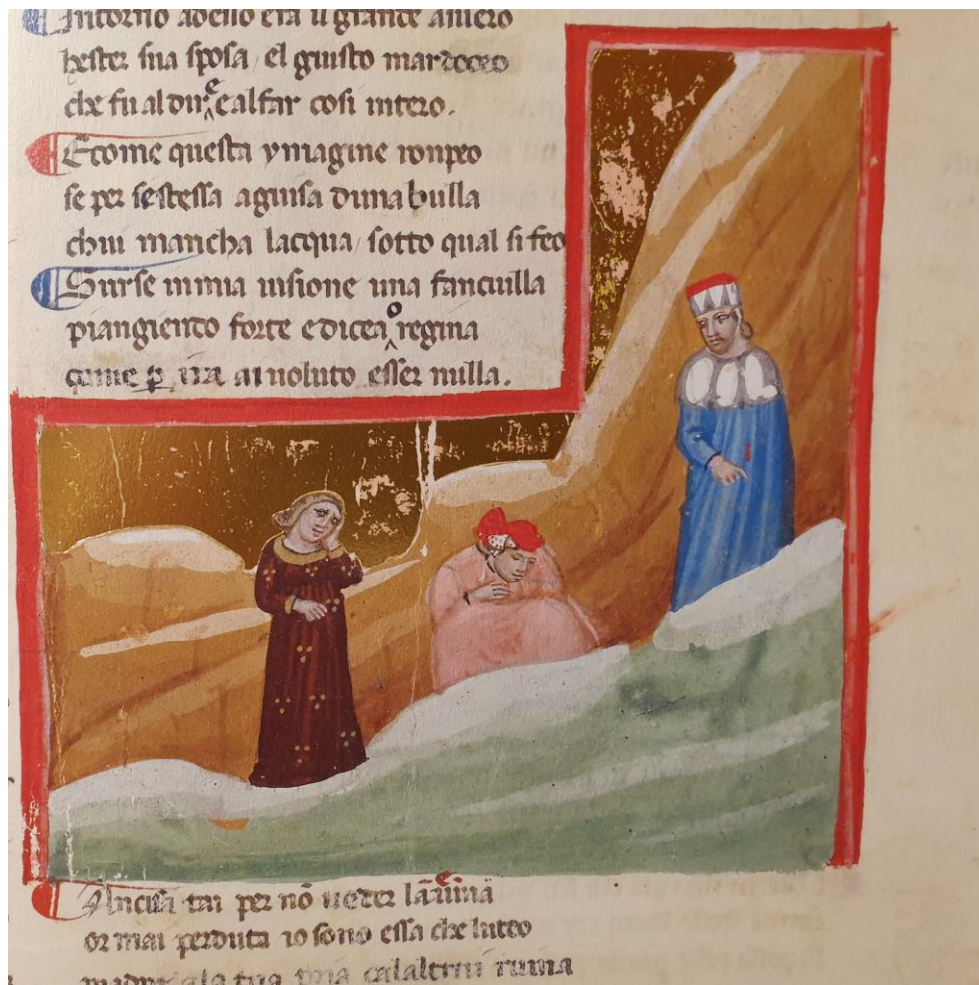 Intorno adello era il grande asuero
hester sua sposa / el giusto mardoceo
che fu al dir e alfar cosi intero .
E come questa ymagine ronpeo
se per sestessa a guisa duna bulla
chui mancha lacqua / sotto qual si feo
Surse in mia uisione una fanciulla
piangiendo forte e dicea o regina
çome p ira ai uoluto esser nulla .
Ancisa tai per nõ ueder lauina
or mai perduta io sono essa che luteo
madre ala tua pria calaltrui ruina